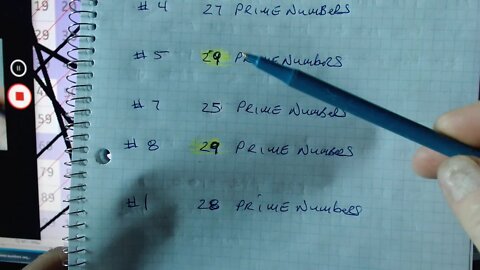 # 4 27 PRIME NUMBERS
# 5 29 PRIME NUMBERS
# 7 25 PRIME NUMBERS
# 8 29 PRIME NUMBERS
# 1 28 PRIME NUMBERS